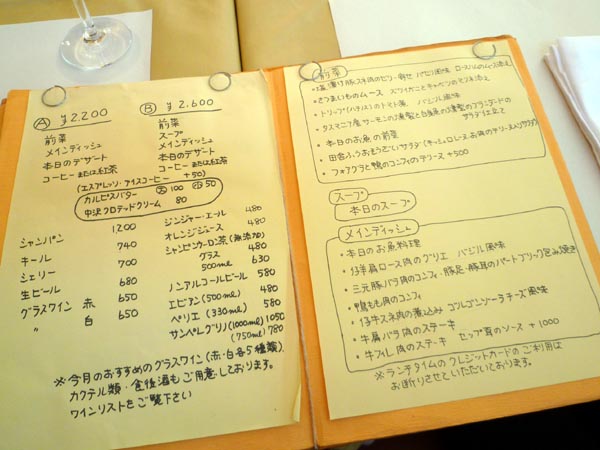 Ⓐ ¥2,200
前菜
メインディッシュ
本日のデザート
コーヒー または 紅茶
Ⓑ ¥2,600
前菜
スープ
メインディッシュ
本日のデザート
コーヒー または 紅茶
(エスプレッソ・アイスコーヒー +50)
カルピスバター 大 100 小 50
中沢クロテッドクリーム 80
シャンパン 1,200
キール 740
シェリー 700
生ビール 680
グラスワイン 赤 650
〃 白 650
ジンジャーエール 480
オレンジジュース 480
シャンピンウーロン茶(無添加)
グラス 480
500ml 630
ノンアルコールビール 580
エビアン(500ml) 480
ペリエ (330ml) 580
サンペレグリノ(1000ml) 1050
(750ml) 780
※今月のおすすめのグラスワイン(赤・白各5種類)
カクテル類・食後酒もご用意しております。
ワインリストをご覧下さい
前菜
・塩漬け豚スネ肉のゼリー寄せ パセリ風味
・さつまいものムース ズワイガニとキャベツのマリネ添え
・トリップ(ハチノス)のトマト煮 バジル風味
・タスマニア産サーモンの燻製と白身魚の燻製のブランダードのサラダ仕立て
・本日のお魚の前菜
・フォアグラと鴨のコンフィのテリーヌ +500
スープ
本日のスープ
メインディッシュ
・本日のお魚料理
・仔羊肩ロース肉のグリエ バジル風味
・三元豚バラ肉のコンフィ・豚足・豚耳のパートブリック包み焼き
・鴨もも肉のコンフィ
・仔牛スネ肉の煮込み ゴルゴンゾーラチーズ風味
・牛肩バラ肉のステーキ
・牛フィレ肉のステーキ セップ茸のソース +1000
※ランチタイムのクレジットカードのご利用は
お断りさせていただいております。